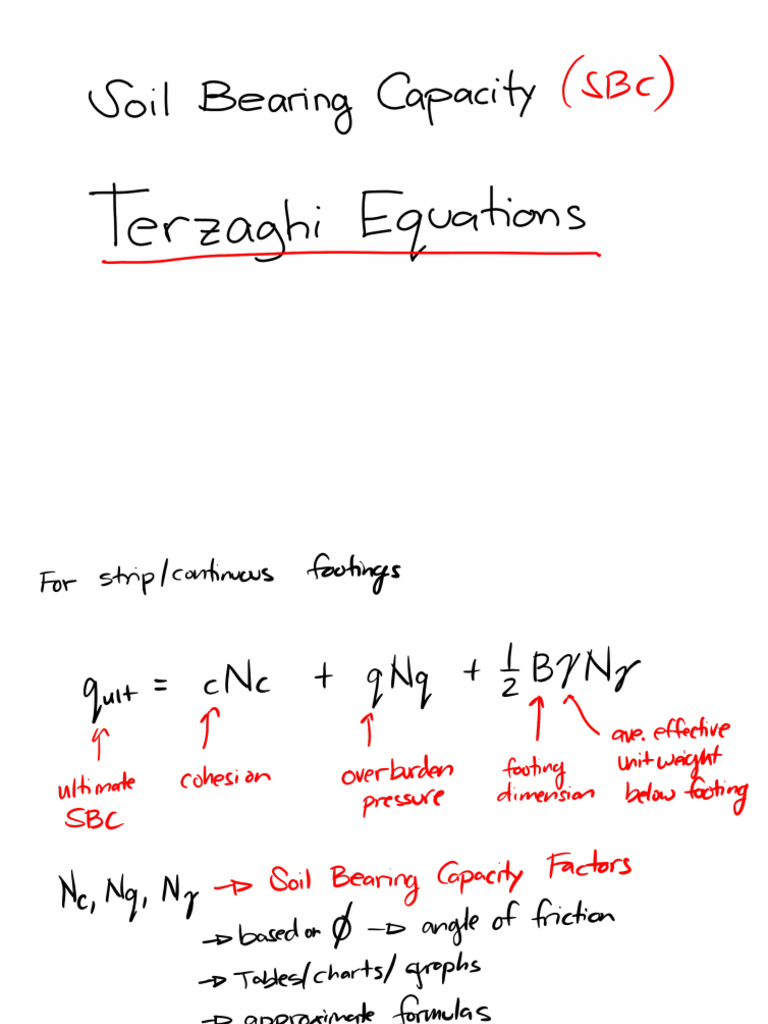 Soil Bearing Capacity (SBC)
Terzaghi Equations
For strip/continuous footings
qult = cNc + qNq + 1/2 BγNγ
ultimate SBC
cohesion
overburden pressure
footing dimension
ave. effective unit weight below footing
Nc, Nq, Nγ → Soil Bearing Capacity Factors
→ based on φ → angle of friction
→ Tables/charts/graphs
→ approximate formulas